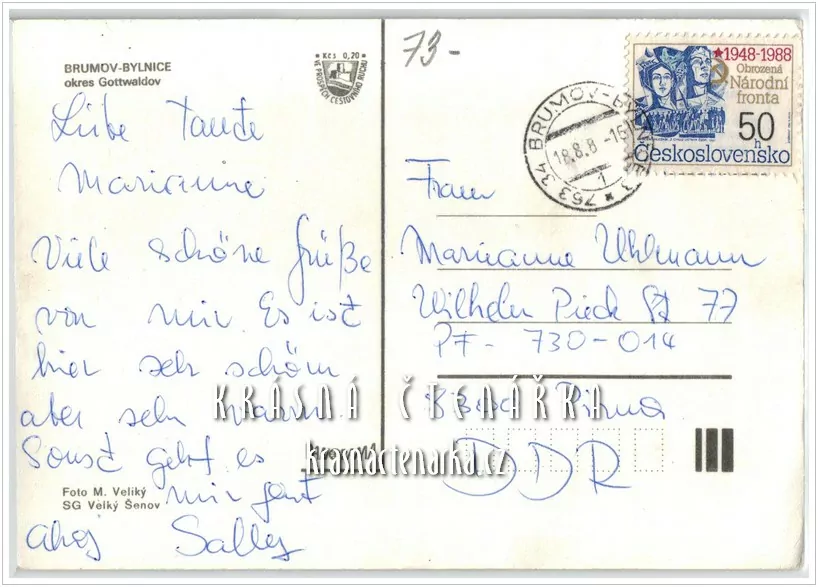 BRUMOV-BYLNICE
okres Gottwaldov
Kčs 0,20
VE PROSPĚCH CESTOVNÍHO RUCHU
73-
Liebe Tante
Marianne
Viele schöne Grüße
von mir. Es ist
hier sehr schön
aber sehr warm.
Sonst geht es
mir gut
Ahoj Sally
Foto M. Veliký
SG Velký Šenov
1948-1988
Obrozená
Národní
fronta
50 h
Československo
763 34 BRUMOV-BYLNICE 3
18.8.8 -16
1
Frau
Marianne Uhlmann
Wilhelm Pieck St 77
PF - 730-014
8300 Pirna
DDR
KRÁSNÁ ČTENÁŘKA
krasnactenarka.cz